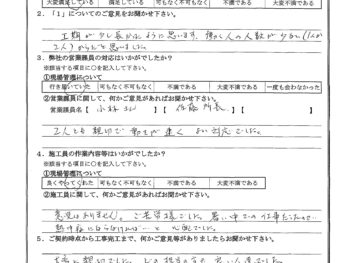 大変満足している 満足している 可も不可もなく 不満である 大変不満である
2.「1」についてのご意見をお聞かせ下さい。
工期が少し長かったように思います。働く人の人数が少ない(1人か
2人)からだと思いました。
3. 弊社の営業課員の対応はいかがでしたか?
※該当する項目に○を記入して下さい。
①現場管理について
行き届いていた 可もなく不可もなく 不満である 大変不満である 一度も会わなかった
②営業課員に関して、何かご意見があればお聞かせ下さい。
営業課員名【 小林さん 】【 佐藤所長 】【 】
2人とも親切で動きが速く よい対応でした。
4. 施工員の作業内容等はいかがでしたか?
※該当する項目に○を記入して下さい。
①現場管理について
良くやってくれた 可もなく不可もなく 不満である 大変不満である
②施工員に関して、何かご意見があればお聞かせ下さい。
意見はありません。ご苦労様でした。暑い中での仕事だったので…
熱中症にならなければ…と 心配でした。
5. ご契約時点から工事完了まで、何かご意見等がありましたらお聞かせ下さい。